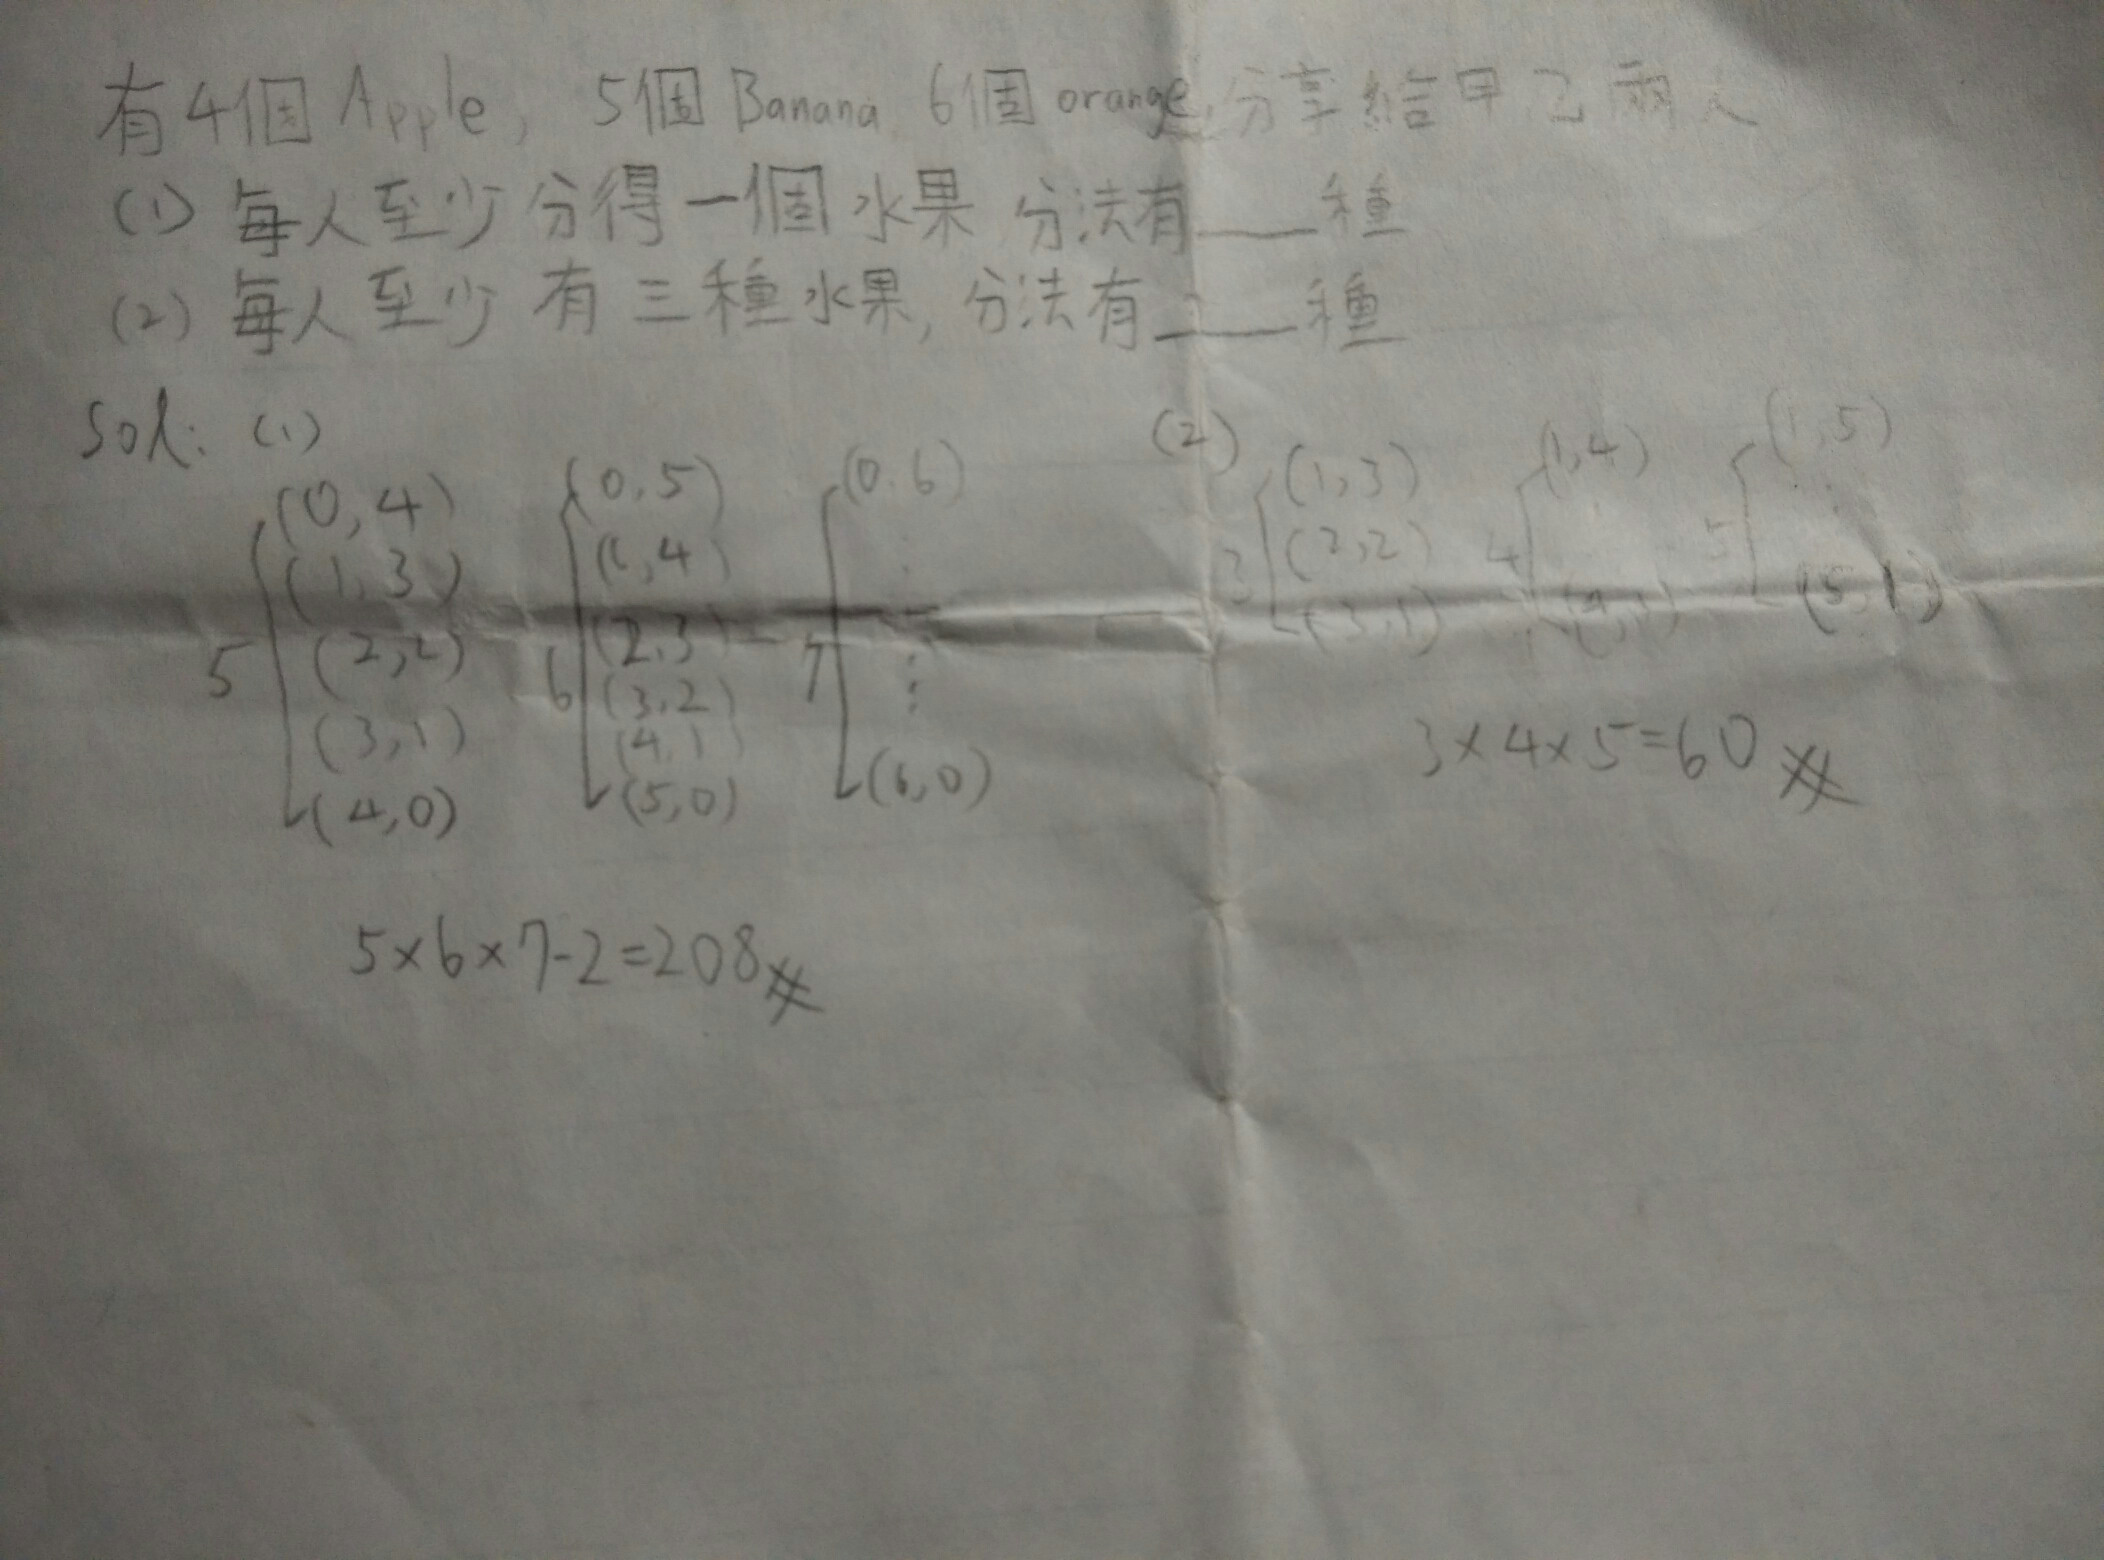 有4個 Apple, 5個 Banana, 6個 orange, 分享給甲乙兩人
(1) 每人至少分得一個水果 分法有____種
(2) 每人至少有三種水果, 分法有____種
Sol: (1)
5
(0,4)
(1,3)
(2,2)
(3,1)
(4,0)
6
(0,5)
(1,4)
(2,3)
(3,2)
(4,1)
(5,0)
7
(0,6)
⋮
(6,0)
5×6×7-2=208
(2)
3
(1,3)
(2,2)
(3,1)
4
(1,4)
⋮
(4,1)
5
(1,5)
⋮
(5,1)
3×4×5=60